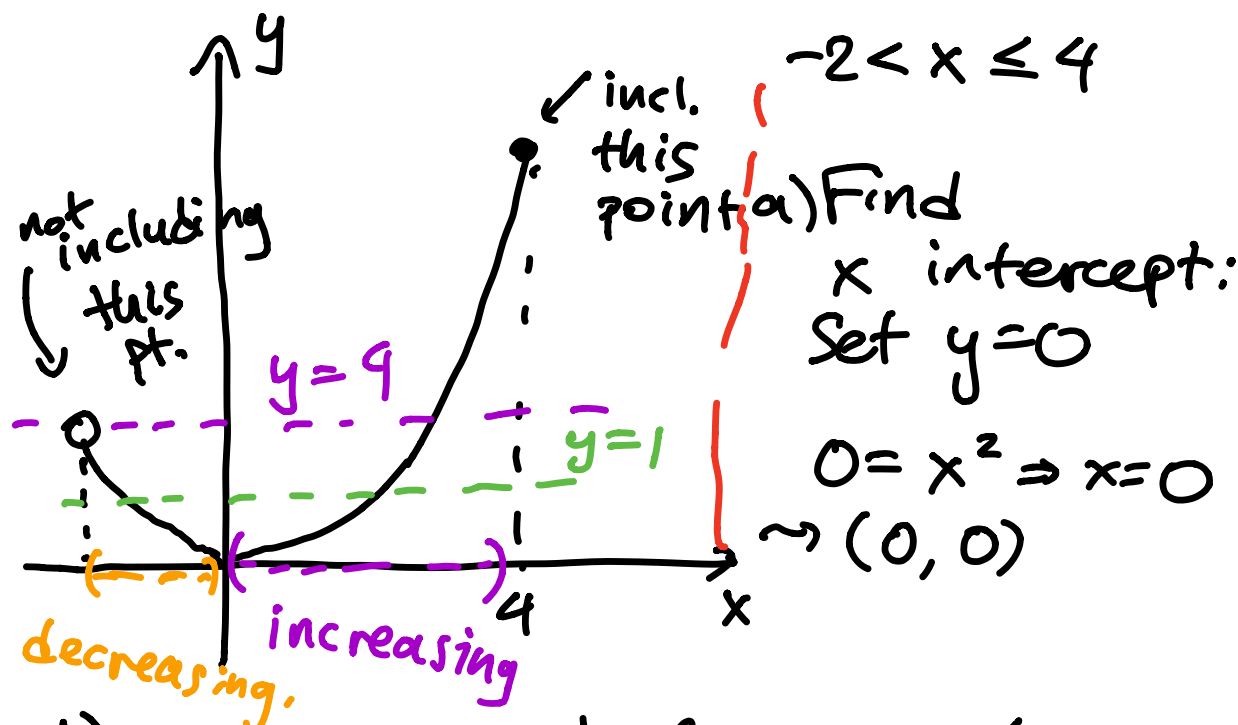 y
not
including
this
pt.
incl.
this
point
y=9
y=1
4
x
decreasing.
increasing
-2 < x ≤ 4
a) Find
x intercept:
Set y=0
0= x² ⇒ x=0
↝ (0, 0)